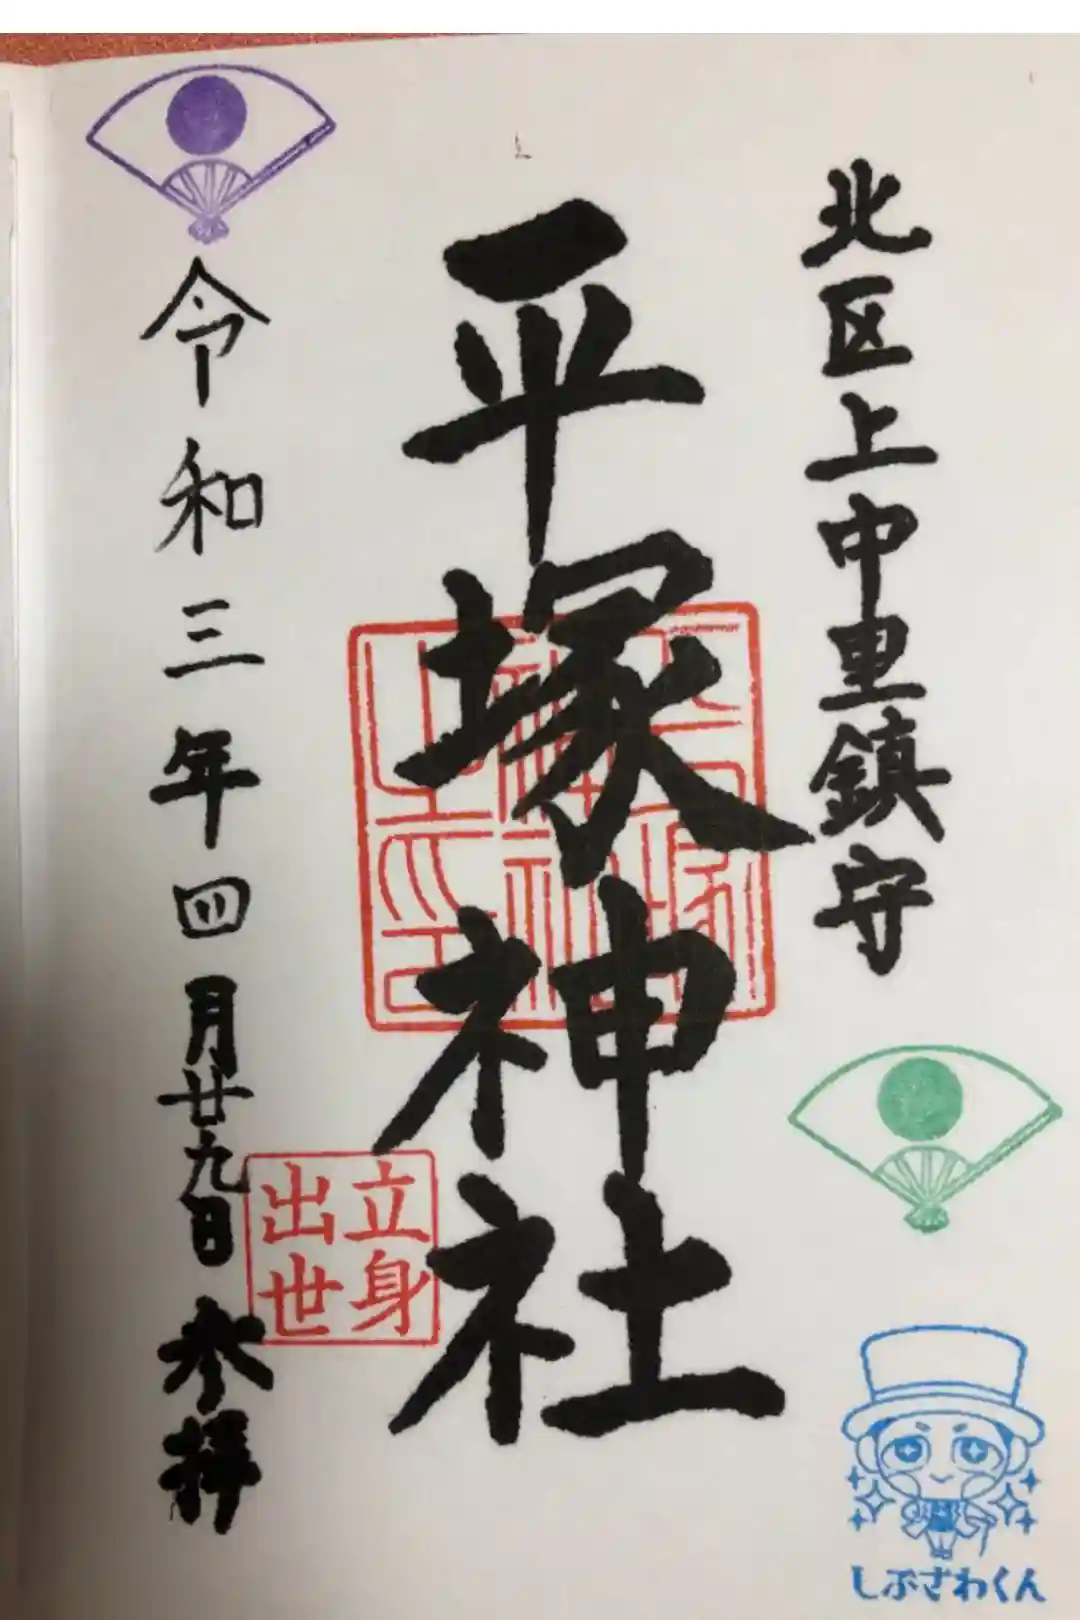 北区上中里鎮守
平塚神社
立身
出世
令和三年四月廿九日参拝
しぶざわくん